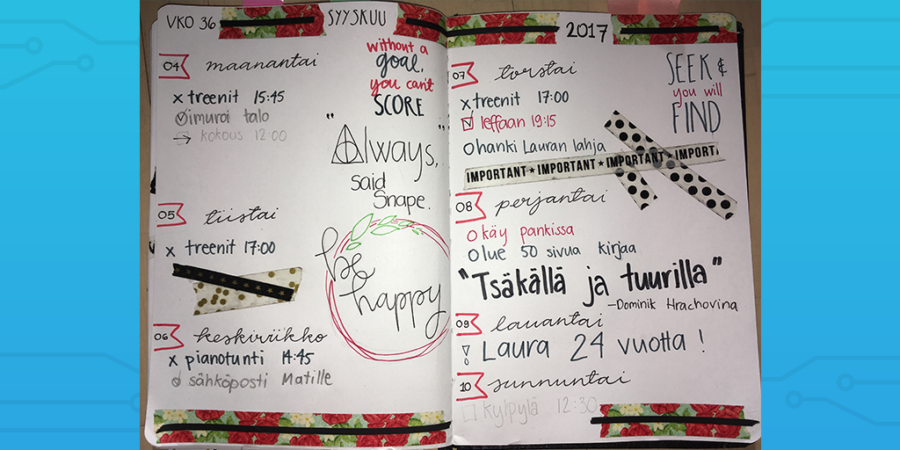 VKO 36
SYYSKUU
04 maanantai
x treenit 15:45
imuroi talo
→ kokous 12:00
without a
goal,
you can't
SCORE
"Always,"
said
Snape.
05 tiistai
x treenit 17:00
be
happy
06 keskiviikko
x pianotunti 14:45
sähköposti Matille
2017
07 torstai
x treenit 17:00
leffaan 19:15
o hanki Lauran lahja
SEEK &
you will
FIND
IMPORTANT ★ IMPORTANT ★ IMPORTANT ★ IMPORT
08 perjantai
o käy pankissa
o lue 50 sivua kirjaa
"Tsäkällä ja tuurilla"
-Dominik Hrachovina
09 lauantai
! Laura 24 vuotta !
10 sunnuntai
kylpylä 12:30